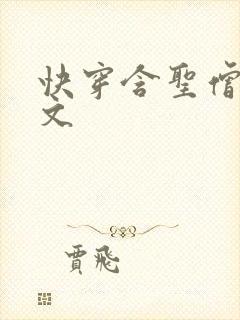 快穿含聖僧
文
賈飛